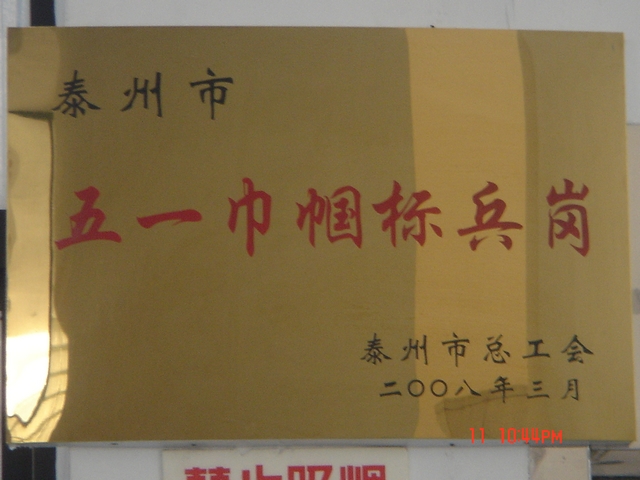 泰州市
五一巾帼标兵岗
泰州市总工会
二〇〇八年三月
11 10:44PM
禁止吸烟